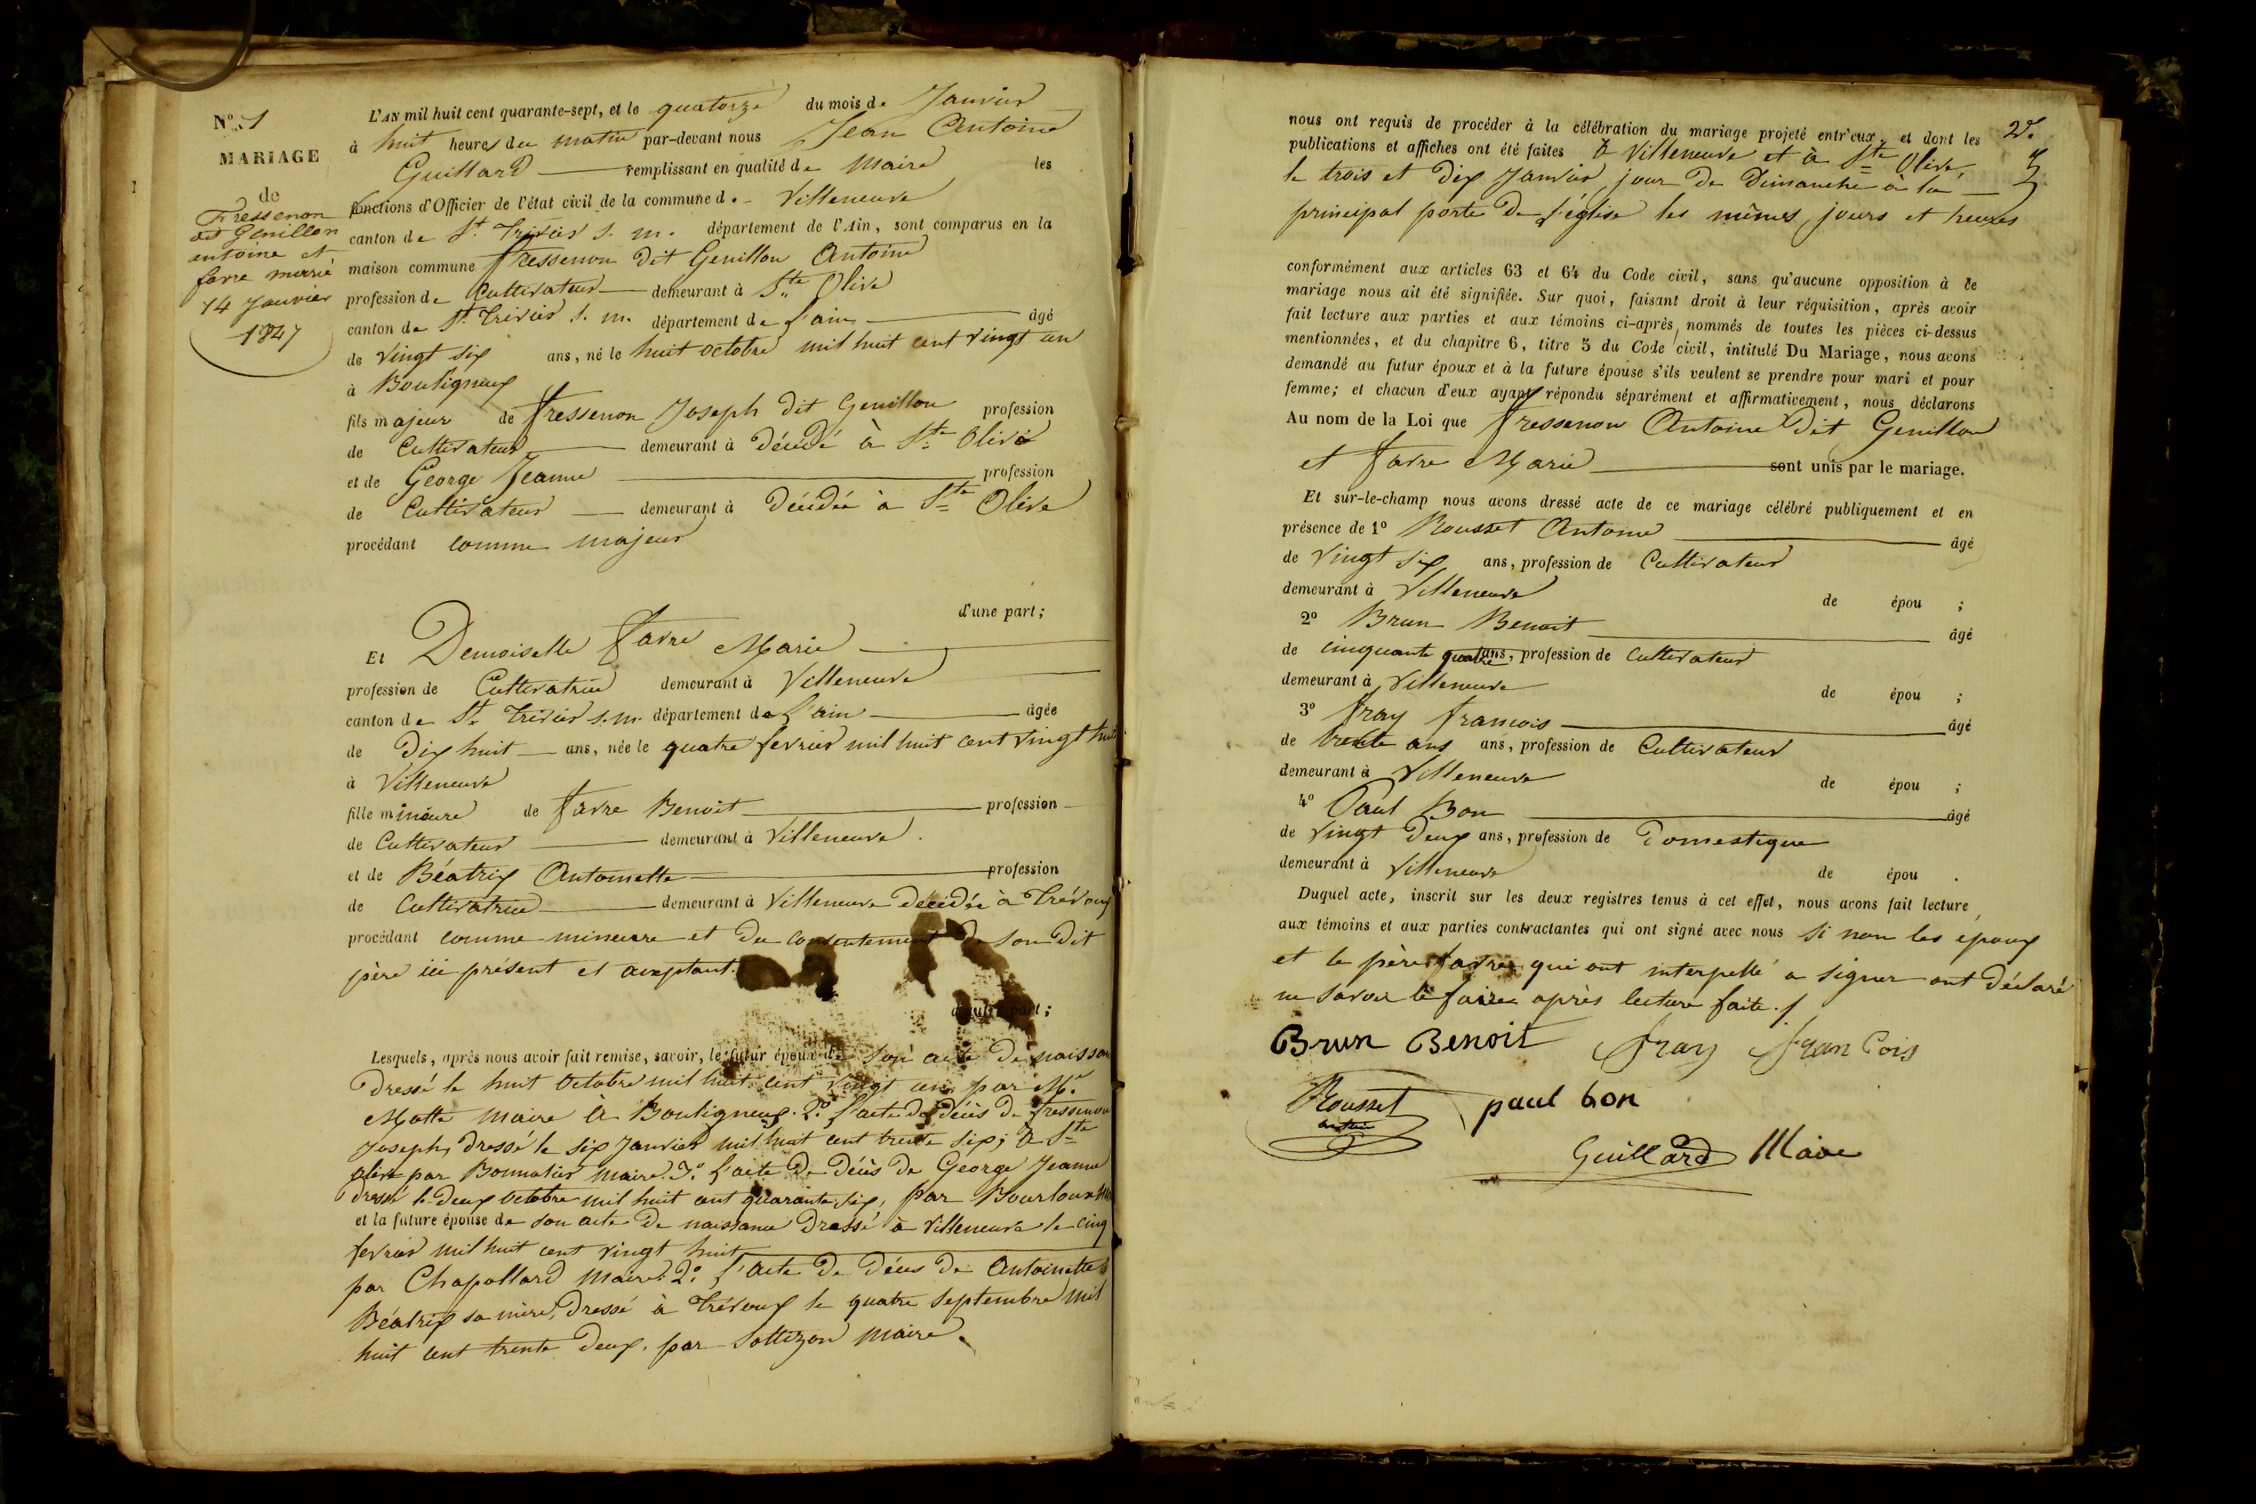 N° 1
MARIAGE
de
Fressenon
dit Genillon
antoine et
favre marie
14 Janvier
1847
L'AN mil huit cent quarante-sept, et le quatorze du mois de Janvier
à huit heures du matin par-devant nous Jean Antoine
Guillard remplissant en qualité de Maire les
fonctions d'Officier de l'état civil de la commune de Villeneuve
canton de St Trivier s. m. département de l'Ain, sont comparus en la
maison commune Fressenon dit Genillon Antoine
profession de Cultivateur demeurant à Ste Olive
canton de St Trivier s. m. département de l'ain âgé
de vingt six ans, né le huit octobre mil huit cent vingt un
à Bouligneux
fils majeur de Fressenon Joseph dit Genillon profession
de Cultivateur demeurant à décédé à Ste Olive
et de George Jeanne profession
de Cultivateur demeurant à décédée à Ste Olive
procédant comme majeur
d'une part;
Et Demoiselle Favre Marie
profession de Cultivatrice demeurant à Villeneuve
canton de St Trivier s. m. département de l'ain âgée
de dix huit ans, née le quatre fevrier mil huit cent vingt huit
à Villeneuve
fille mineure de Favre Benoit profession
de Cultivateur demeurant à Villeneuve.
et de Béatrix Antoinette profession
de Cultivatrice demeurant à Villeneuve décédée à Trévoux
procédant comme mineure et du consentement de son dit
père ici présent et acceptant.
d'autre part;
Lesquels, après nous avoir fait remise, savoir, le futur époux de son acte de naissan
dressé le huit Octobre mil huit cent vingt un par Mr
Motte maire à Bouligneux. 2° l'acte de décès de Fressenon
Joseph, dressé le six Janvier mil huit cent trente six; à Ste
olive par Bonnatier maire. 3° l'acte de décès de George Jeanne
dressé le deux octobre mil huit cent quarante six, par
et la future épouse de son acte de naissance dressé à Villeneuve le cinq
fevrier mil huit cent vingt huit
par Chapollard maire. 2° l'acte de décès de Antoinette
Béatrix sa mère, dressé à Trévoux le quatre Septembre mil
huit cent trente deux. par maire.
2e
nous ont requis de procéder à la célébration du mariage projeté entr'eux, et dont les
publications et affiches ont été faites à Villeneuve et à Ste Olive,
le trois et dix Janvier, jour de Dimanche à la
principal porte de l'église les mêmes jours et heures
conformément aux articles 63 et 64 du Code civil, sans qu'aucune opposition à ce
mariage nous ait été signifiée. Sur quoi, faisant droit à leur réquisition, après avoir
fait lecture aux parties et aux témoins ci-après nommés de toutes les pièces ci-dessus
mentionnées, et du chapitre 6, titre 5 du Code civil, intitulé Du Mariage, nous avons
demandé au futur époux et à la future épouse s'ils veulent se prendre pour mari et pour
femme; et chacun d'eux ayant répondu séparément et affirmativement, nous déclarons
Au nom de la Loi que Fressenon Antoine dit Genillon
et Favre Marie sont unis par le mariage.
Et sur-le-champ nous avons dressé acte de ce mariage célébré publiquement et en
présence de 1° Rousset Antoine âgé
de vingt six ans, profession de Cultivateur
demeurant à Villeneuve de épou ;
2° Brun Benoit âgé
de cinquante quatre ans, profession de cultivateur
demeurant à Villeneuve de épou ;
3° Fray Francois âgé
de trente ans ans, profession de Cultivateur
demeurant à Villeneuve de épou ;
4° Paul Bon âgé
de vingt deux ans, profession de Domestique
demeurant à Villeneuve de épou .
Duquel acte, inscrit sur les deux registres tenus à cet effet, nous avons fait lecture
aux témoins et aux parties contractantes qui ont signé avec nous si non les epoux
et le père favre qui ont interpellé a signer ont déclaré
ne savoir le faire après lecture faite.
Brun Benoit Fray Fran Cois
Rousset
antoine
paul bon
Guillard Maire